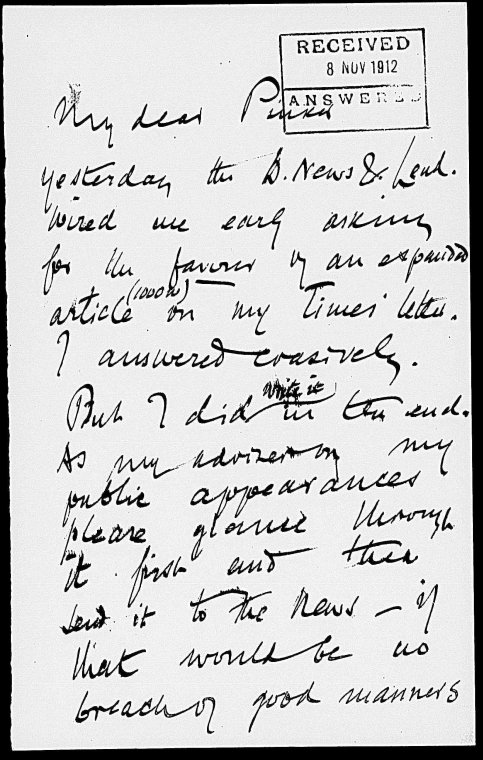 RECEIVED
8 NOV 1912
ANSWERED
My dear Pinker
yesterday the D. News & Lead.
wired me early asking
for the favour of an expanded
article (1000 w) on my Times' letter.
I answered evasively.
But I did write it in the end.
As my adviser on my
public appearances
please glance through
it first and then
send it to the News – if
that would be no
breach of good manners